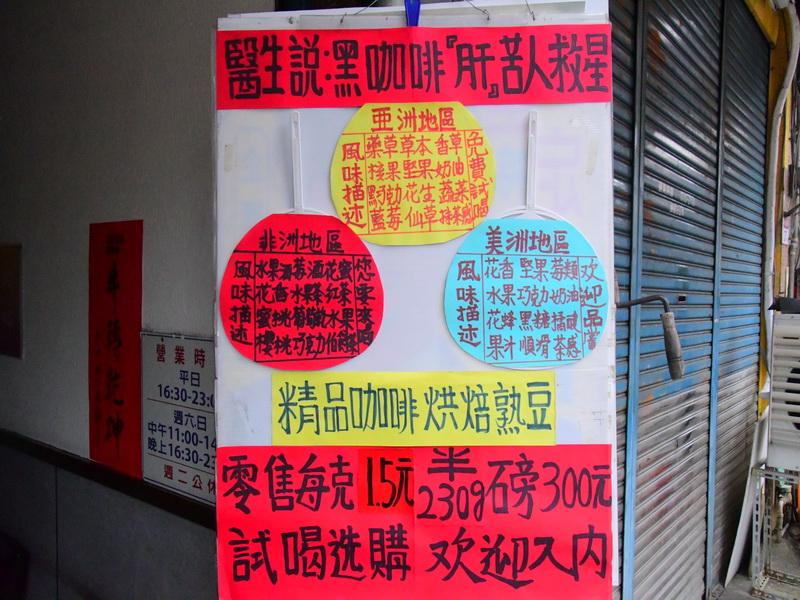 醫生説:黑咖啡『肝』苦人救星
亞洲地區
風味描述
藥草草本香草
核果堅果奶油
黙克力花生蔬菜
藍莓仙草抹茶感
免費試喝
非洲地區
風味描述
水果湯莓酒花蜜
花香水果茶紅茶
蜜桃葡萄乾水果
櫻桃巧克力伯爵茶
您要來喝
美洲地區
風味描述
花香堅果莓類
水果巧克力奶油
花蜂黑糖橘酸
果汁順滑茶感
欢迎品嘗
精品咖啡烘焙熟豆
零售每克1.5元
半磅230g 300元
試喝选購 欢迎入内
營業時
平日
16:30-23:
週六.日
中午11:00-14
晚上16:30-23
週二公休
乾坤